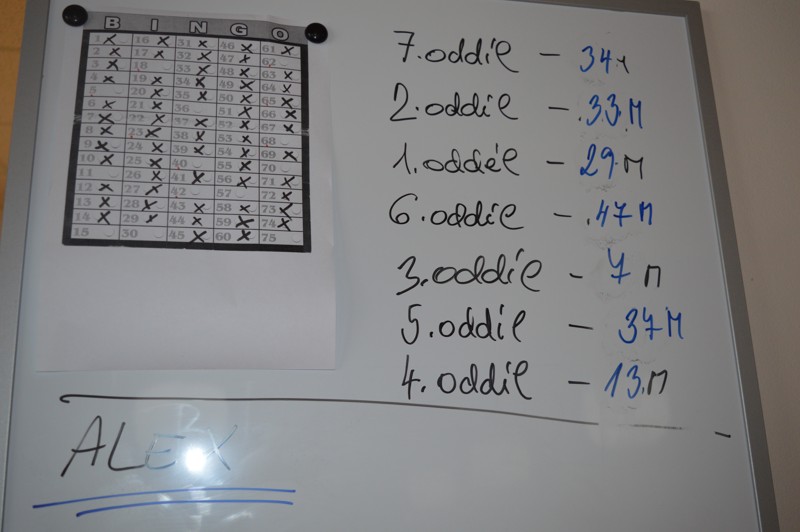 B I N G O
1 16 31 46 61
2 17 32 47 62
3 18 33 48 63
4 19 34 49 64
5 20 35 50 65
6 21 36 51 66
7 22 37 52 67
8 23 38 53 68
9 24 39 54 69
10 25 40 55 70
11 26 41 56 71
12 27 42 57 72
13 28 43 58 73
14 29 44 59 74
15 30 45 60 75
7. oddíl – 34 M
2. oddíl – 33 M
1. oddíl – 29 M
6. oddíl – 47 M
3. oddíl – 7 M
5. oddíl – 37 M
4. oddíl – 13. M
ALEX